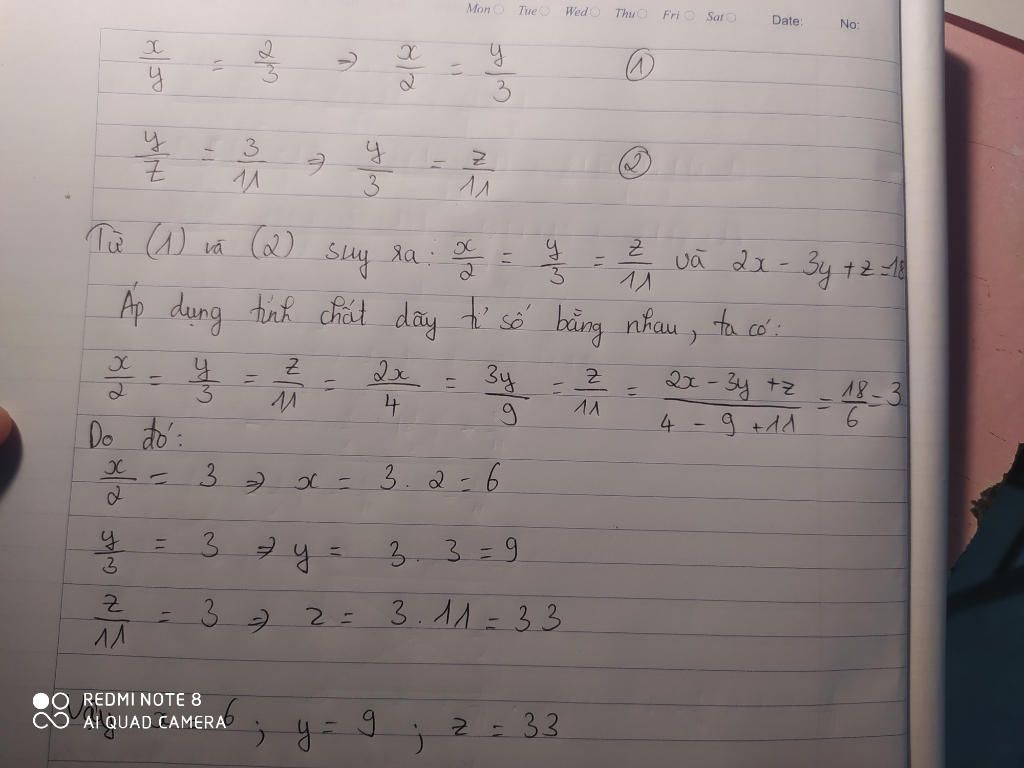 Mon Tue Wed Thu Fri Sat Date: No:
x/y = 2/3 ⇒ x/2 = y/3 ①
y/z = 3/11 ⇒ y/3 = z/11 ②
Từ (1) và (2) suy ra: x/2 = y/3 = z/11 và 2x - 3y + z = 18
Áp dụng tính chất dãy tỉ số bằng nhau, ta có:
x/2 = y/3 = z/11 = 2x/4 = 3y/9 = z/11 = (2x - 3y + z)/(4 - 9 + 11) = 18/6 = 3
Do đó:
x/2 = 3 ⇒ x = 3 . 2 = 6
y/3 = 3 ⇒ y = 3 . 3 = 9
z/11 = 3 ⇒ z = 3 . 11 = 33
6 ; y = 9 ; z = 33
REDMI NOTE 8
AI QUAD CAMERA